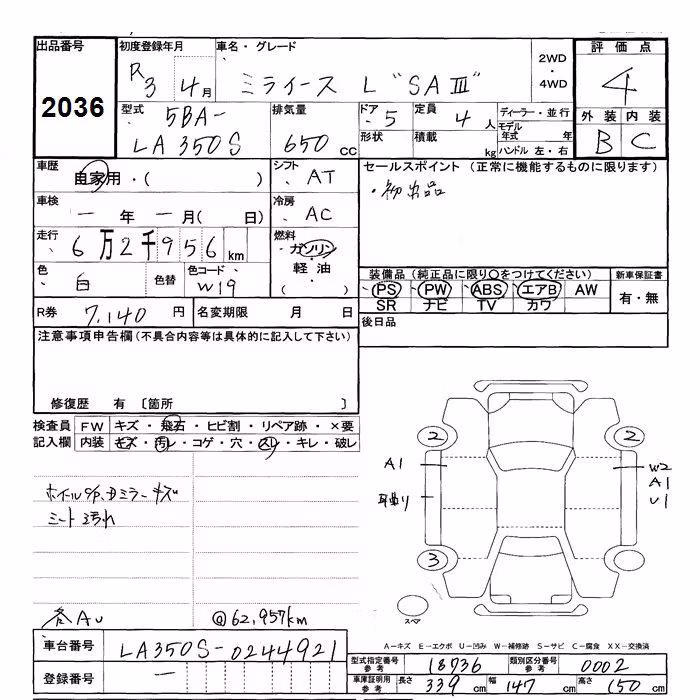 出品番号 初度登録年月 車名・グレード 2WD・4WD 評価点
2036 R3 4月 ミライース L "SAⅢ" 4
型式 5BA-LA350S 排気量 650cc ドア・形状 5 定員 4人 積載 kg ディーラー・並行 モデル年式 年 ハンドル 左・右 外装 内装
B C
車歴 自家用・( ) シフト AT セールスポイント(正常に機能するものに限ります)
・初出品
車検 一年一月( 日) 冷房 AC
走行 6万2千956km 燃料 ガソリン 軽油 ( )
色 白 色替 色コード W19 装備品(純正品に限り○をつけてください) 新車保証書
PS PW ABS エアB AW 有・無
SR ナビ TV カワ
R券 7,140円 名変期限 月 日 後日品
注意事項申告欄(不具合内容等は具体的に記入して下さい)
修復歴 有 〔箇所 〕
検査員 FW キズ・飛石・ヒビ割・リペア跡・×要
記入欄 内装 キズ・汚レ・コゲ・穴・スレ・キレ・破レ
2 2
A1 W2
A1
U1
ミラーキズ
シート汚れ
3
各AU @62,957km
スペア
A-キズ E-エクボ U-凹み W-補修跡 S-サビ C-腐食 XX-交換済
車台番号 LA350S-0244921 型式指定番号 参考 18736 類別区分番号 参考 0002
登録番号 一 車庫証明用 参考 長さ 339cm 幅 147cm 高さ 150cm